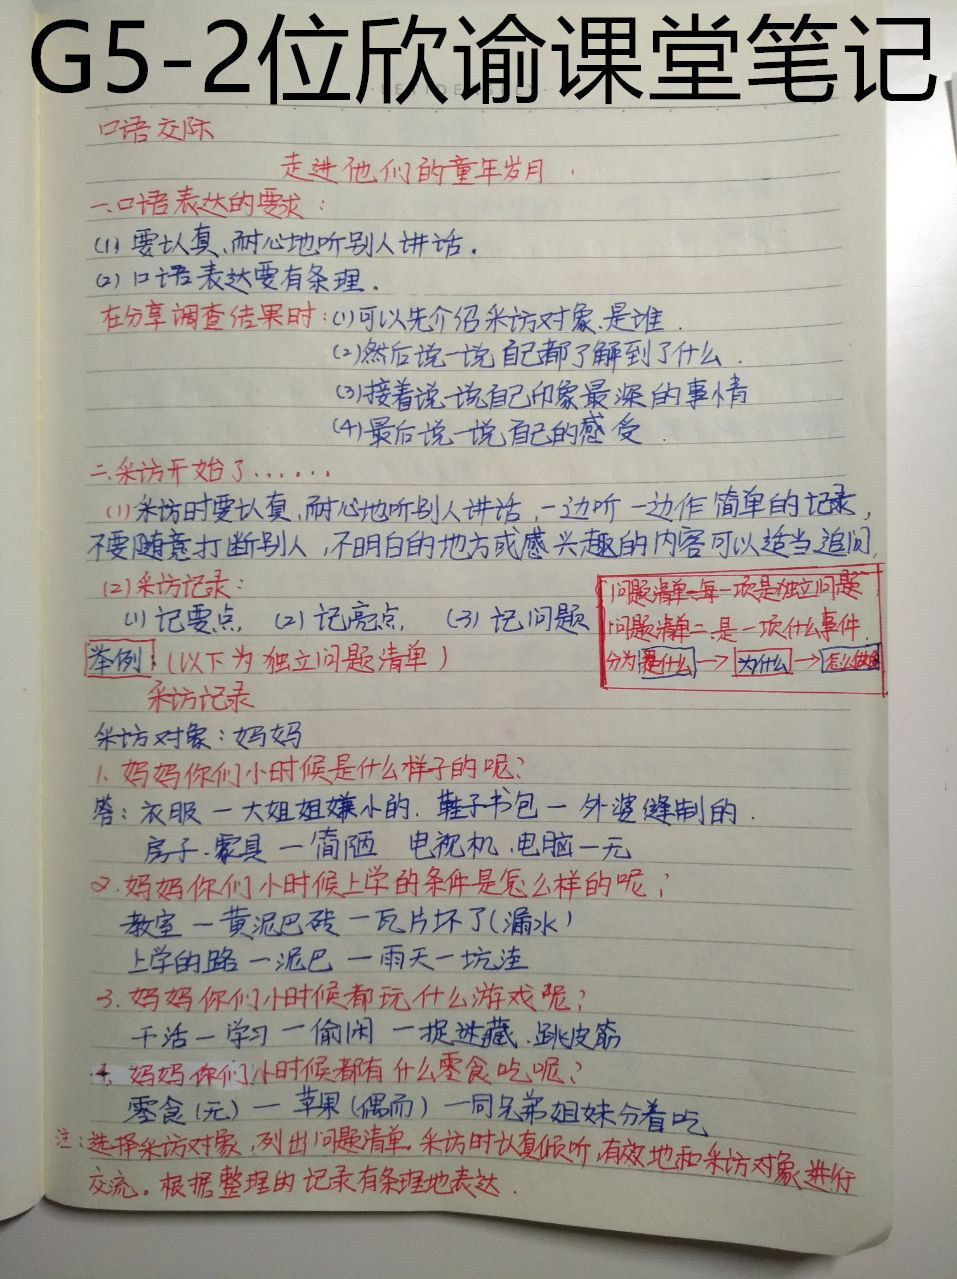 G5-2位欣谕课堂笔记
口语交际
走进他们的童年岁月.
一.口语表达的要求:
(1) 要认真、耐心地听别人讲话.
(2) 口语表达要有条理.
在分享调查结果时:(1)可以先介绍采访对象是谁.
(2)然后说一说自己都了解到了什么.
(3)接着说一说自己印象最深的事情
(4)最后说一说自己的感受.
二.采访开始了......
(1)采访时要认真,耐心地听别人讲话,一边听一边作简单的记录,
不要随意打断别人,不明白的地方或感兴趣的内容可以适当追问.
(2)采访记录:
(1)记要点, (2)记亮点, (3)记问题
问题清单一:每一项是独立问题
问题清单二:是一项什么事件.
分为 是什么→为什么→怎么做的
举例:(以下为独立问题清单)
采访记录
采访对象:妈妈
1.妈妈你们小时候是什么样子的呢?
答:衣服一大姐姐嫌小的. 鞋子书包一外婆缝制的.
房子.家具一简陋 电视机.电脑一无
2.妈妈你们小时候上学的条件是怎么样的呢?
教室一黄泥巴砖一瓦片坏了(漏水)
上学的路一泥巴一雨天一坑洼
3.妈妈你们小时候都玩什么游戏呢?
干活一学习一偷闲一捉迷藏.跳皮筋
4.妈妈你们小时候都有什么零食吃呢?
零食(无)一苹果(偶而)一同兄弟姐妹分着吃
注:选择采访对象,列出问题清单.采访时认真倾听,有效地和采访对象进行
交流。根据整理的记录有条理地表达.